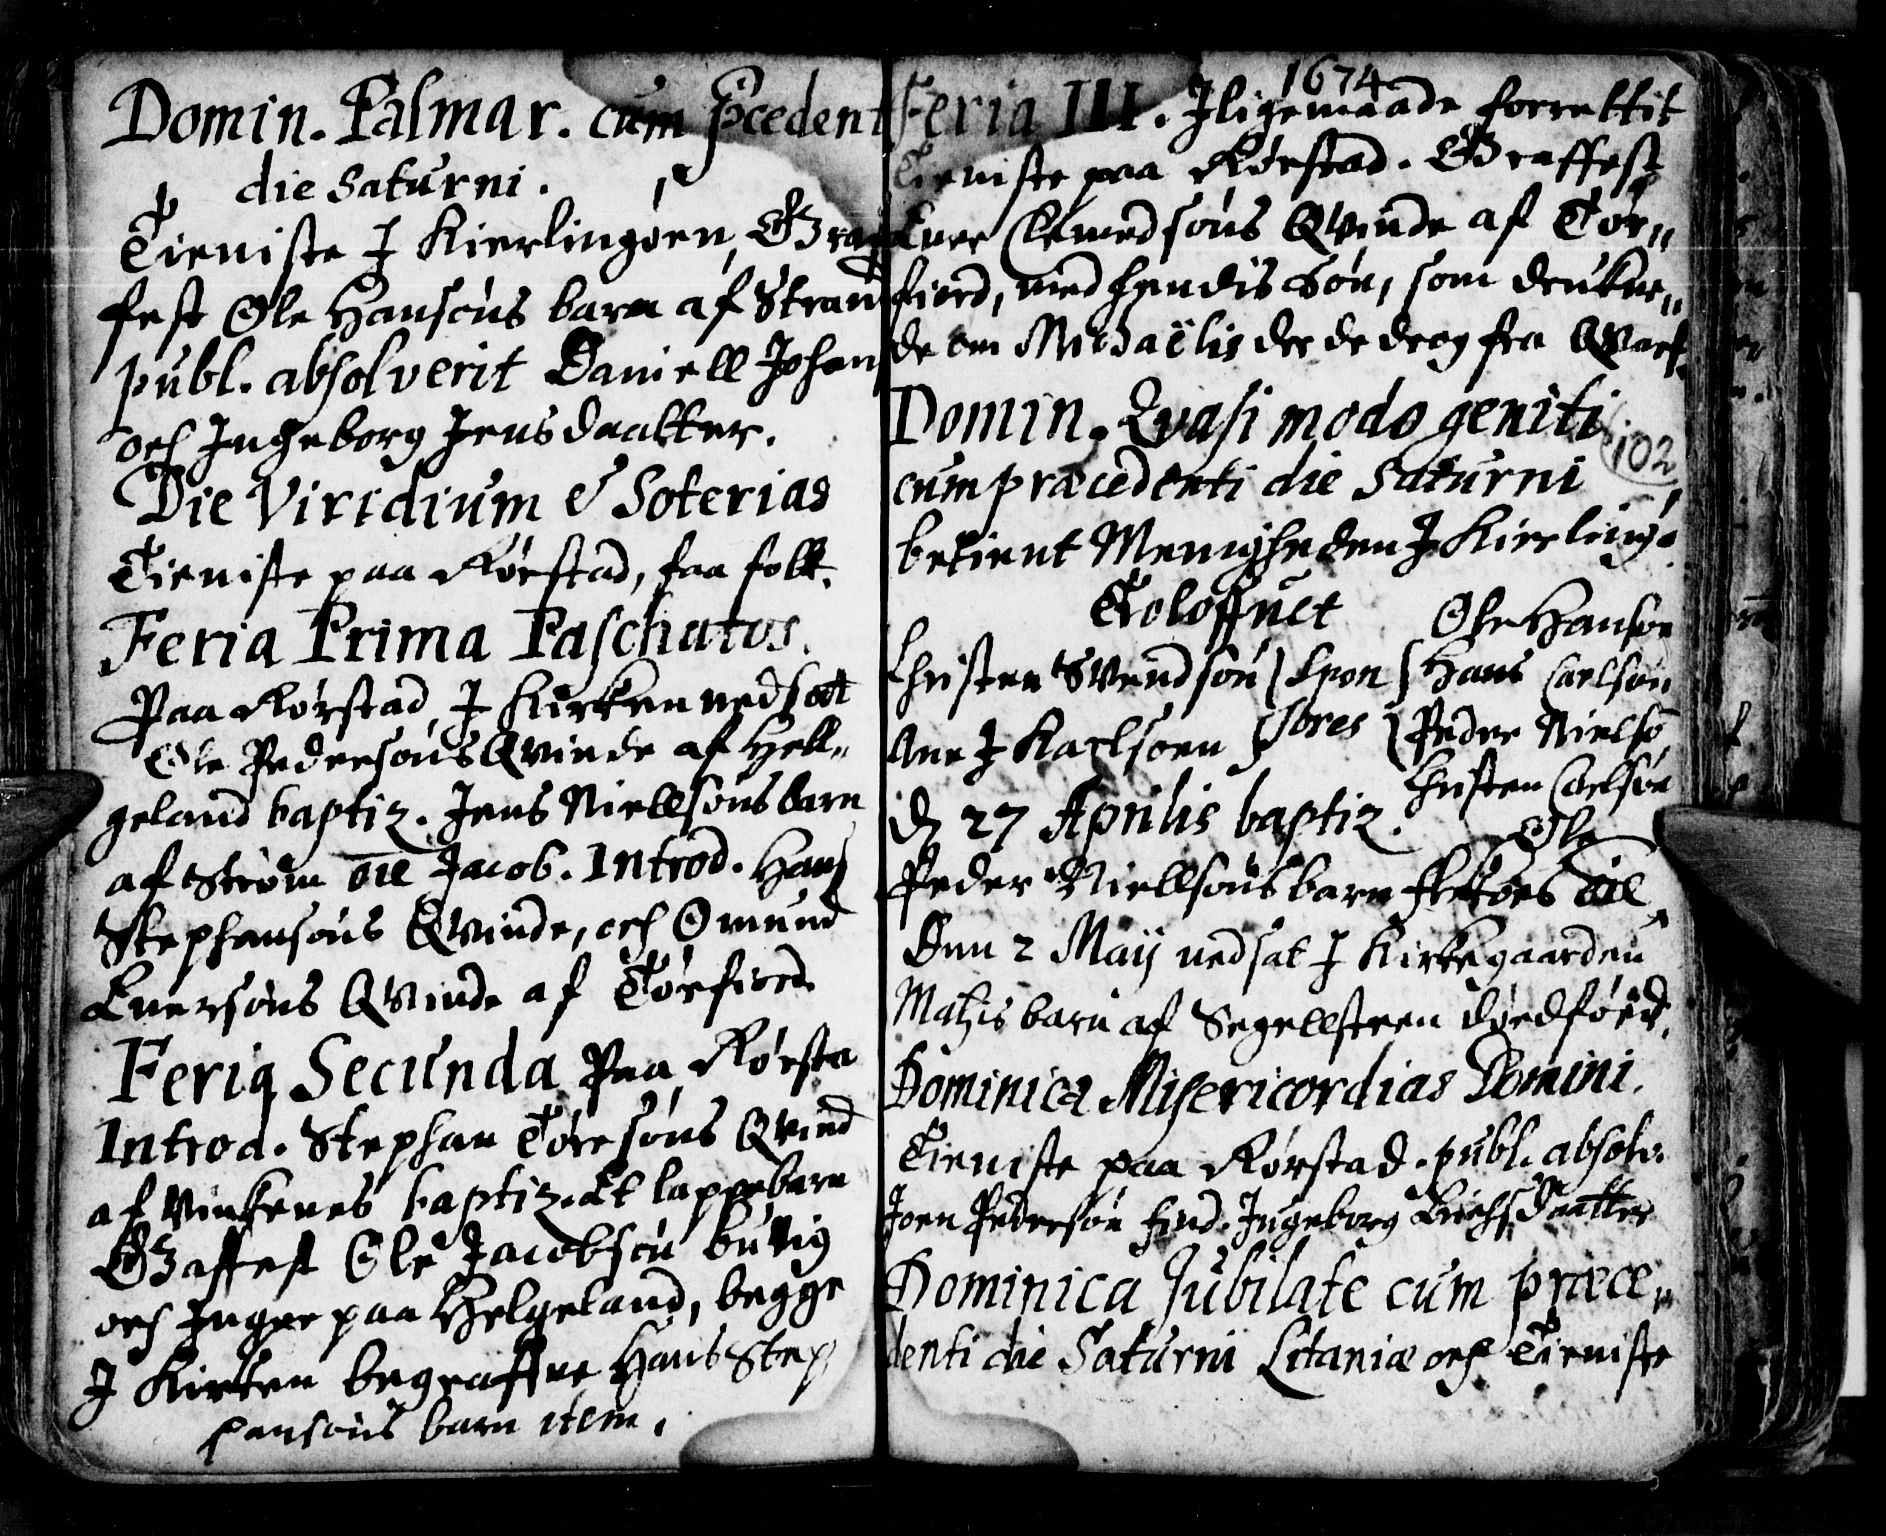 Domin. Palmar. cum pcedent
die Saturni.
Tieniste J Kierlingøen, Graf
fest Ole Hansøns barn af Strand
publ. absolverit Daniell Johans
och Ingeborg Jensdaatter.
Die Viridium & Soterias
Tieniste paa Rørstad, faa folk.
Feria Prima Paschatos.
Paa Rørstad, J Kirken nedsat
Ole Pedersøns Qvinde af Hell„
geland baptiz. Jens Niellsøns barn
af Strøm oie Jacob. Introd. Hans
Stephansøns Qvinde, och Omund
Enersøns Qvinde af Tørfiord.
Feria Secunda Paa Rørsta
Introd. Stephan Toresøns Qvind
af Vinkenes baptiz. Et lappebarn
Graffest Ole Jacobsøn
och Inger paa Helgeland, begge
J Kirken begraffne Hans Step
hansøns barn item.
1674
Feria III. Jligemaade forrettit
Tieniste paa Rørstad. Graffest
Ener Clemedsøns Qvinde af Tør„
fiord, med hendis Søn, som drukne„
de om Michaëlis der de drog fra Qvarf.
Domin. Qvasi modo geniti
102
cum præcedenti die Saturni
betient Menigheden J Kierling.
Troloffuet
Christen Svendsøn } Spon { Ole Hansøn
Hans Carlsøn
Ane J Karlsøen } sores { Peder Nielsø
Christen Carlsøn
D 27 Aprilis baptiz.
Ole
Peder Niellsøns barn oie
Den 2 Maij nedsat J Kirkegaarden
Mahis barn af Segellsteen dødfød.
Dominica Misericordias Domini.
Tieniste paa Rørstad. publ. absolv.
Joen Pedersøn find. Ingeborg Daatter
Dominica Jubilate cum præce„
denti die Saturni Litaniæ och Tieniste